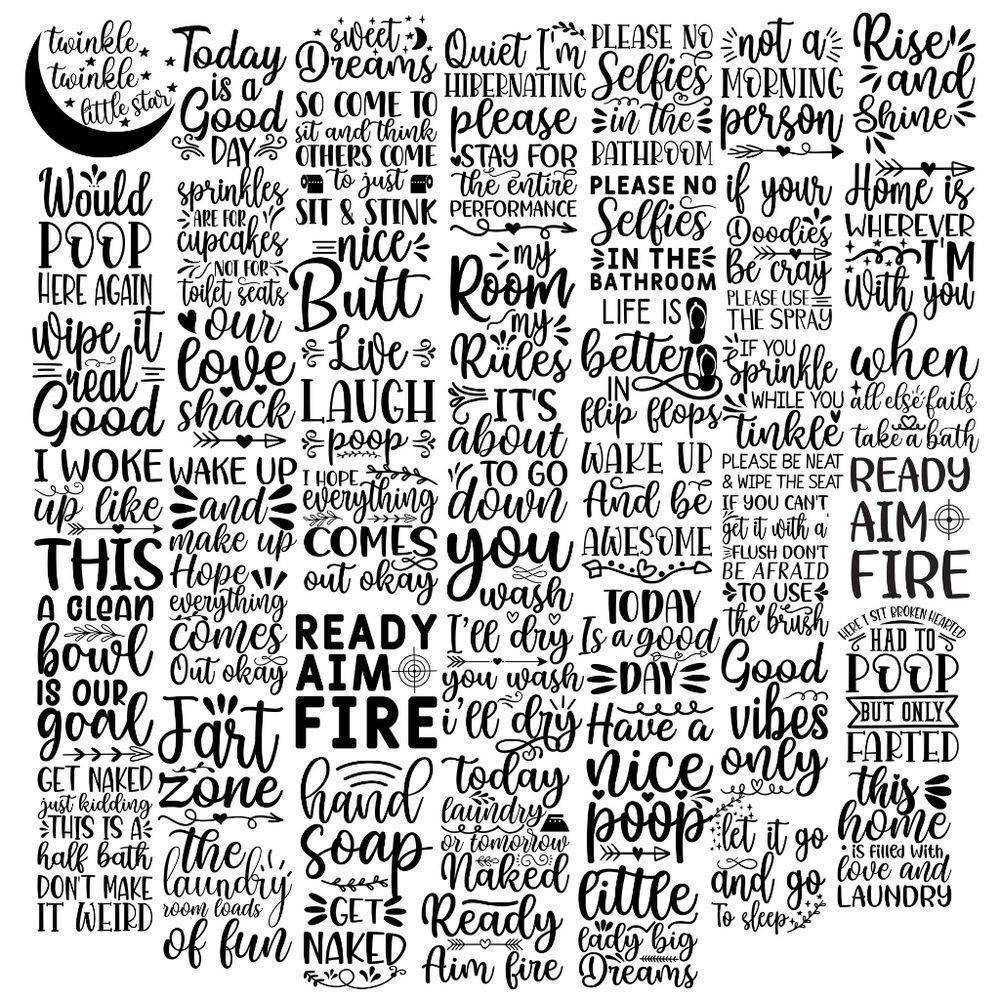 twinkle
twinkle
little star
Would
POOP
HERE AGAIN
wipe it
real
Good
I WOKE
up like
THIS
A CLEAN
bowl
IS OUR
goal
GET NAKED
just kidding
THIS IS A
half bath
DON'T MAKE
IT WEIRD
Today
is a
Good
DAY
sprinkles
ARE FOR
cupcakes
NOT FOR
toilet seats
our
love
shack
WAKE UP
and
make up
Hope
everything
comes
Out okay
Fart
zone
the
laundry
room loads
of fun
sweet
Dreams
SO COME TO
sit and think
OTHERS COME
to just
SIT & STINK
nice
Butt
Live
LAUGH
poop
I HOPE
everything
COMES
out okay
READY
AIM
FIRE
hand
soap
GET
NAKED
Quiet I'm
HIBERNATING
please
STAY FOR
the entire
PERFORMANCE
my
Room
my
Rules
IT'S
about
TO GO
down
you
wash
I'll dry
you wash
i'll dry
today
laundry
or tomorrow
Naked
Ready
Aim fire
PLEASE NO
Selfies
in the
BATHROOM
PLEASE NO
Selfies
IN THE
BATHROOM
LIFE IS
better
IN
flip flops
WAKE UP
And be
AWESOME
TODAY
Is a good
DAY
Have a
nice
poop
little
lady big
Dreams
not a
MORNING
person
if your
Doodies
Be cray
PLEASE USE
THE SPRAY
IF YOU
Sprinkle
WHILE YOU
tinkle
PLEASE BE NEAT
& WIPE THE SEAT
IF YOU CAN'T
get it with a
FLUSH DON'T
BE AFRAID
TO USE
the brush
Good
vibes
only
let it go
and go
To sleep
Rise
and
Shine
Home is
WHEREVER
I'M
With you
when
all else fails
take a bath
READY
AIM
FIRE
HERE I SIT BROKEN HEARTED
HAD TO
POOP
BUT ONLY
FARTED
this
home
is filled with
love and
LAUNDRY